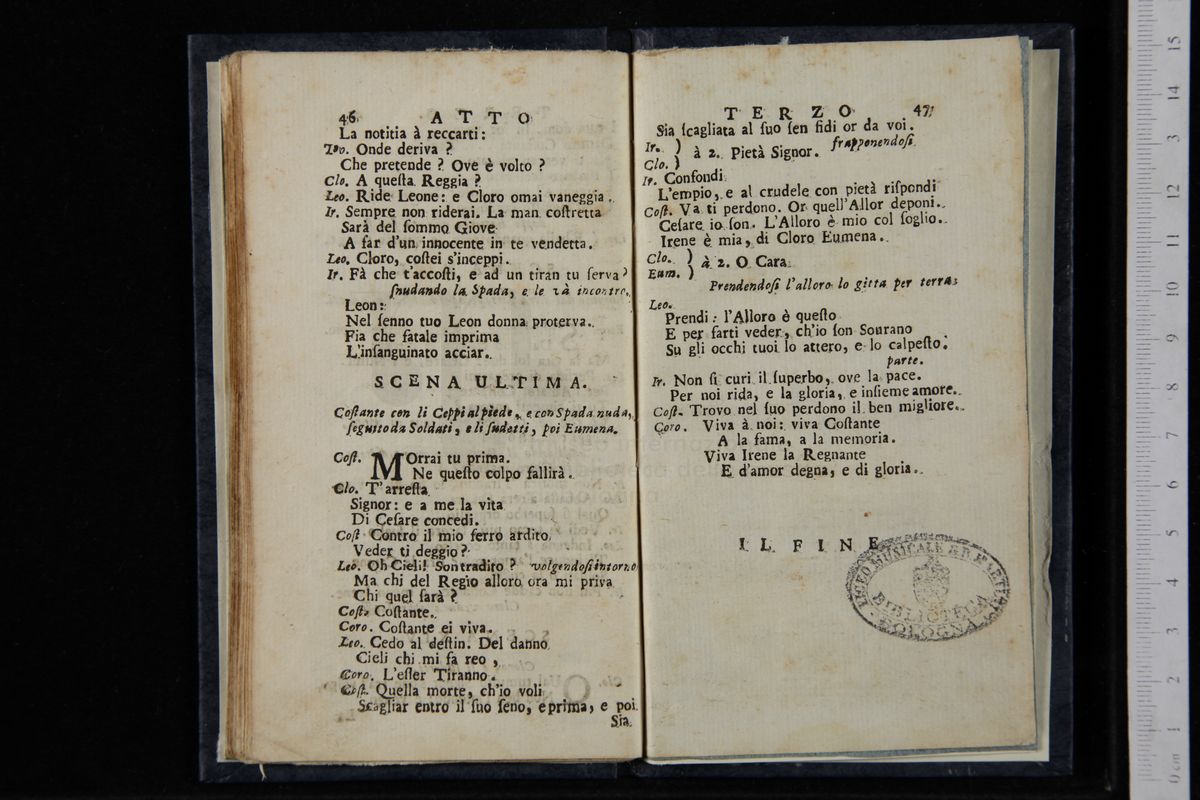 46 ATTO
La notitia à reccarti:
Leo. Onde deriva?
Che pretende? Ove è volto?
Clo. A queſta Reggia?
Leo. Ride Leone: e Cloro omai vaneggia.
Ir. Sempre non riderai. La man coſtretta
Sarà del ſommo Giove
A far d'un innocente in te vendetta.
Leo. Cloro, coſtei s'inceppi.
Ir. Fà che t'accoſti, e ad un tiran tu ſerva?
ſnudando la Spada, e le và incontro.
Leon:
Nel ſenno tuo Leon donna proterva.
Fia che fatale imprima
L'inſanguinato acciar.
SCENA ULTIMA.
Coſtante con li Ceppi al piede, e con Spada nuda,
ſeguito da Soldati, e li ſudetti, poi Eumena.
Coſt. MOrrai tu prima.
Ne queſto colpo fallirà.
Clo. T'arreſta
Signor: e a me la vita
Di Ceſare concedi.
Coſt Contro il mio ferro ardito
Veder ti deggio?
Leo. Oh Cieli! Son tradito? volgendoſi intorno
Ma chi del Regio alloro ora mi priva
Chi quel ſarà?
Coſt. Coſtante.
Coro. Coſtante ei viva.
Leo. Cedo al deſtin. Del danno
Cieli chi mi fa reo,
Coro. L'eſſer Tiranno.
Coſt. Quella morte, ch'io voli
Scagliar entro il ſuo ſeno, e prima, e poi
Sia
TERZO 47
Sia ſcagliata al ſuo ſen fidi or da voi.
Ir. )
Clo. ) à 2. Pietà Signor. frapponendoſi
Ir. Confondi
L'empio, e al crudele con pietà riſpondi
Coſt. Va ti perdono. Or quell'Allor deponi.
Ceſare io ſon. L'Alloro è mio col ſoglio.
Irene è mia, di Cloro Eumena.
Clo. )
Eum. ) à 2. O Cara
Prendendoſi l'alloro lo gitta per terra;
Leo.
Prendi: l'Alloro è queſto
E per farti veder, ch'io ſon Sourano
Su gli occhi tuoi lo attero, e lo calpeſto.
parte.
Ir. Non ſi curi il ſuperbo, ove la pace.
Per noi rida, e la gloria, e inſieme amore.
Coſt. Trovo nel ſuo perdono il ben migliore.
Coro. Viva à noi: viva Coſtante
A la fama, a la memoria.
Viva Irene la Regnante
E d'amor degna, e di gloria.
IL FINE
LICEO MUSICALE G.B. MARTINI
BIBLIOTECA
BOLOGNA
0 cm 1 2 3 4 5 6 7 8 9 10 11 12 13 14 15